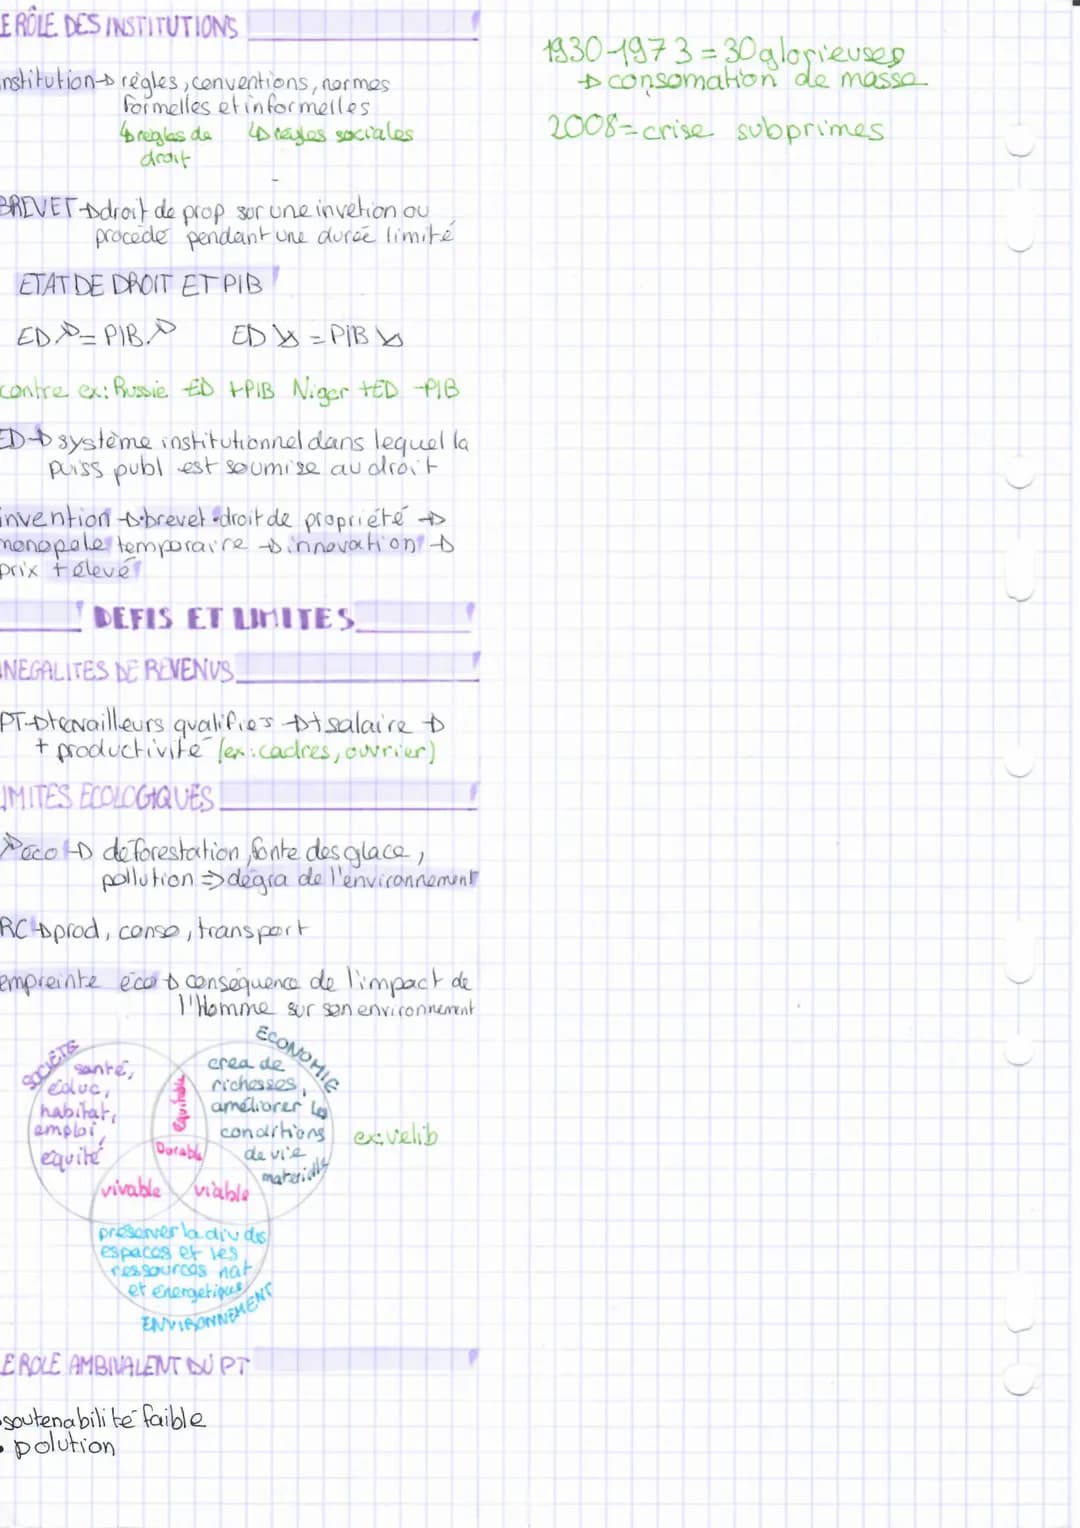 E RÔLE DES INSTITUTIONS
nstitution→ règles, conventions, normes
formelles et informelles
↳règles de ↳règles sociales
droit
BREVET→droit de prop sur une invetion ou
procédé pendant une durée limité
ETAT DE DROIT ET PIB
ED↗=PIB↗ ED↘=PIB↘
contre ex: Russie -ED +PIB Niger +ED -PIB
ED→système institutionnel dans lequel la
puiss publ est soumise au droit
invention→•brevet•droit de propriété→
monopole temporaire→innovation→
prix + élevé
DEFIS ET LIMITES
INEGALITES DE REVENUS
PT→travailleurs qualifiés→+salaire→
+ productivité (ex: cadres, ouvrier)
IMITES ECOLOGIQUES
↗éco→ déforestation, fonte des glace,
pollution ⇒ dégra de l'environnement
RC→prod, conso, transport
empreinte éco→conséquence de l'impact de
l'Homme sur son environnement
SOCIÉTÉ
santé,
éduc,
habitat,
emploi,
équité
ÉCONOMIE
créa de
richesses,
améliorer les
conditions
de vie
matérielle
équitable
Durable
vivable viable
ex: velib
préserver la div des
espaces et les
ressources nat
et énergetiques
ENVIRONNEMENT
E ROLE AMBIVALENT DU PT
•soutenabilité faible
• polution
1930-1973 = 30 glorieuses
→ consomation de masse
2008=crise subprimes